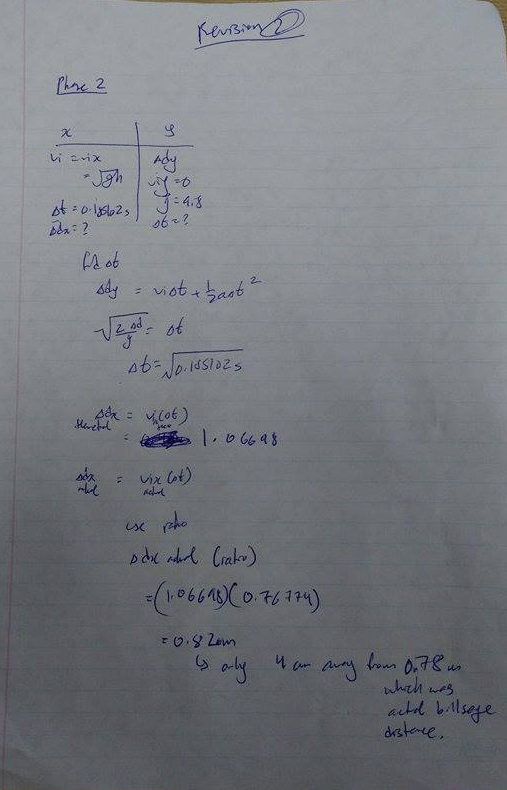 Revision 2
Phase 2
x | y
vi = vix | Δdy
= √gh | viy = 0
Δt = 0.185102s | g = 9.8
Δdx = ? | Δt = ?
find Δt
Δdy = viΔt + ½aΔt²
√(2Δd/g) = Δt
Δt = √0.185102s
Δdx = vix(Δt)
= 1.06698
Δdx = vix(Δt)
actual actual
use ratio
Δdx actual (ratio)
= (1.06698)(0.76774)
= 0.82m
↳ only 4 cm away from 0.78m
which was
actual
distance.